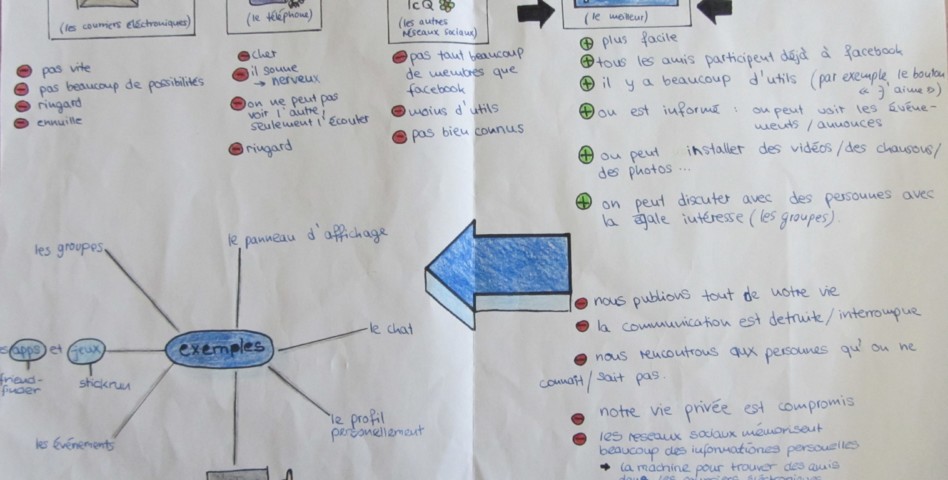 (les courriers électroniques)
pas vite
pas beaucoup de possibilités
ringard
ennuille
(le téléphone)
cher
il sonne
→ nerveux
on ne peut pas
voir l'autre,
seulement l'écouter
ringard
IcQ
(les autres
réseaux sociaux)
pas taut beaucoup
de membres que
facebook
moins d'utils
pas bien connus
(le meilleur)
plus facile
tous les amis participent déjà à facebook
il y a beaucoup d'utils (par exemple le bouton
« j'aime »)
on est informé : on peut voir les événe-
ments / annonces
on peut installer des vidéos / des chansons /
des photos ...
on peut discuter avec des personnes avec
la égale intéresse (les groupes).
nous publions tout de notre vie
la communication est detruite / interrompue
nous rencontrons aux personnes qu' on ne
connaît / sait pas.
notre vie privée est compromis
les reseaux sociaux mémorisent
beaucoup des informationes personelles
→ la machine pour trouver des amis
exemples
les groupes
le panneau d'affichage
le chat
le profil
personellement
les événements
apps et jeux
friend-
finder
stickrun